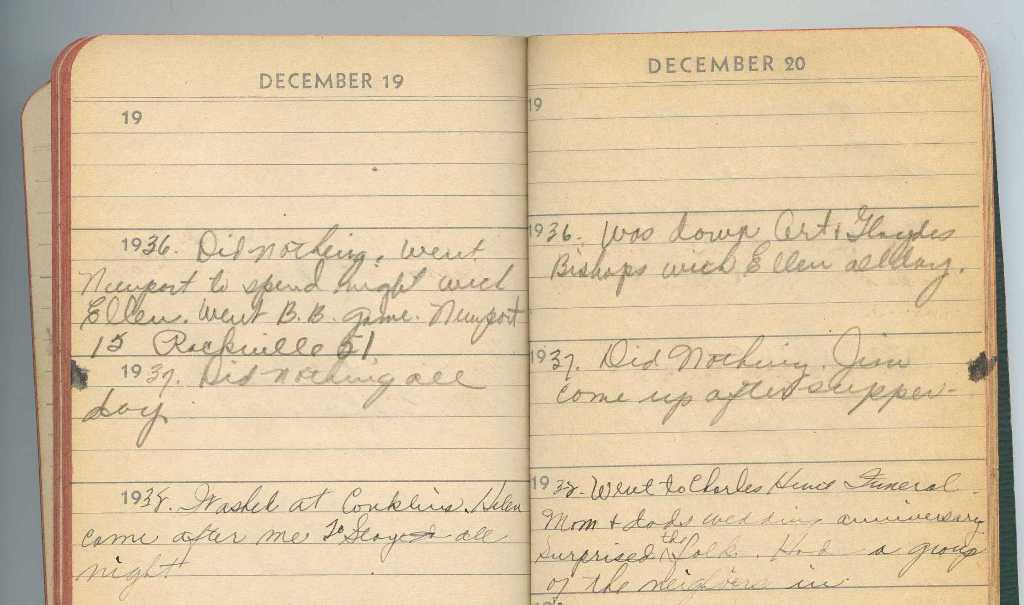 DECEMBER 19
19
1936. Did nothing. Went
Newport to spend night with
Ellen. Went B.B. game. Newport
15 Rockville 51.
1937. Did nothing all
day
1938. Washed at Conklins. Helen
came after me to Stayed all
night
DECEMBER 20
19
1936. Was down Art & Glaydes
Bishops with Ellen all day.
1937. Did Nothing. Jim
come up after supper.
1938. Went to Charles Funeral.
Mom & dads wedding anniversary
Surprised the folk. Had a group
of the neighbors in.